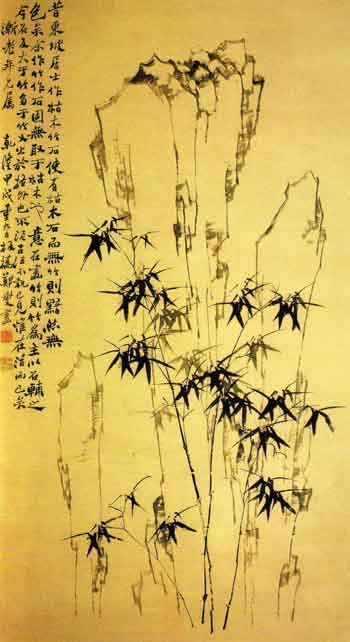 昔東坡居士作枯木竹石使有枯木石而無竹則黯然無
色矣余作竹作石固無取于枯木也意在畫竹則竹為主以石輔之
今石反大于竹多于竹又出於格外也不泥古法不執己見惟在活而已矣
年兄屬 乾隆甲戌重九日板橋鄭燮畫